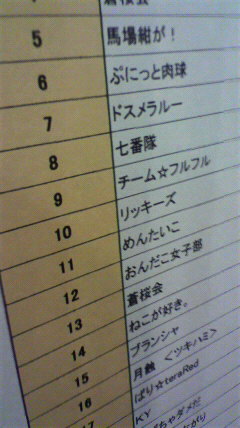 5 馬場紺が！
6 ぷにっと肉球
7 ドスメラルー
8 七番隊
9 チーム☆フルフル
10 リッキーズ
11 めんたいこ
12 おんだこ女子部
13 蒼桜会
14 ねこが好き。
15 ブランシャ
16 月蝕 ＜ツキハミ＞
17 ぱり☆teraRed
KY
ちゃダメだ